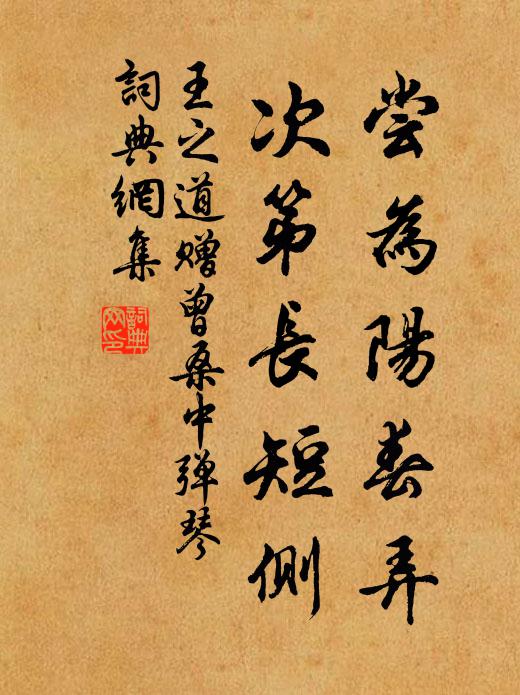 尝為陽春弄
次第長短側
王之道贈曾桑中弹琴
詞典網集
詞典网印